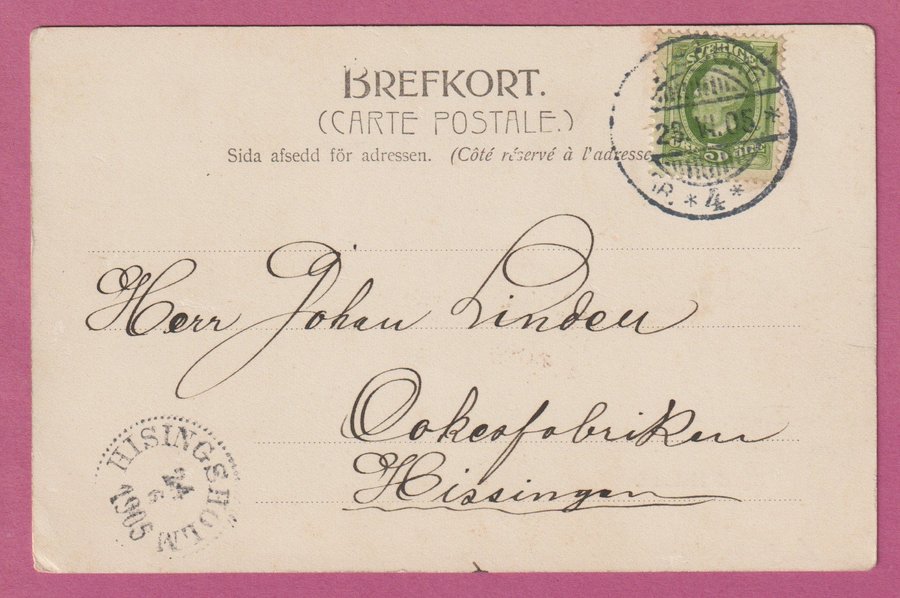 BREFKORT.
(CARTE POSTALE.)
Sida afsedd för adressen. (Côté réservé à l'adresse
SVERIGE
5 ÖRE
R. *4*
Herr Johan Linden
Cokesfabriken
Hissingen
HISINGSHOLM
6
1905